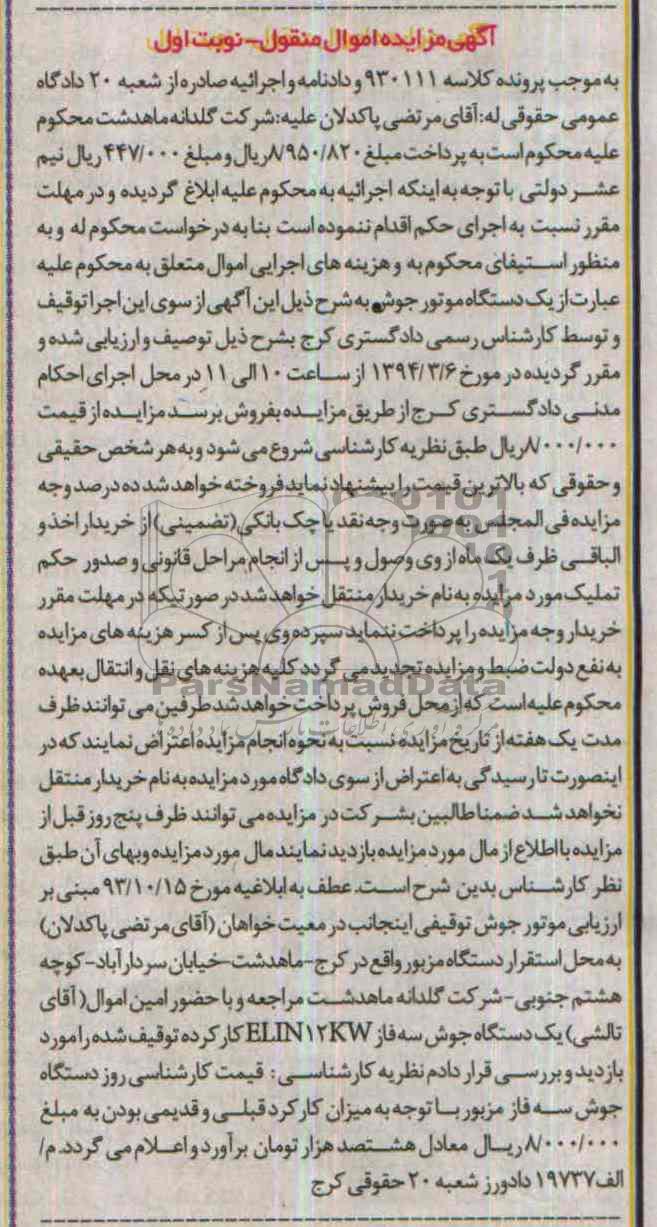 آگهی مزایده اموال منقول - نوبت اول
به موجب پرونده کلاسه ۹۳۰۱۱۱ و دادنامه و اجرائیه صادره از شعبه ۲۰ دادگاه
عمومی حقوقی له: آقای مرتضی پاکدلان علیه: شرکت گلدانه ماهدشت محکوم
علیه محکوم است به پرداخت مبلغ ۸/۹۵۰/۸۲۰ ریال و مبلغ ۴۴۷/۰۰۰ ریال نیم
عشر دولتی با توجه به اینکه اجرائیه به محکوم علیه ابلاغ گردیده و در مهلت
مقرر نسبت به اجرای حکم اقدام ننموده است بنا به درخواست محکوم له و به
منظور استیفای محکوم به و هزینه های اجرایی اموال متعلق به محکوم علیه
عبارت از یک دستگاه موتور جوش به شرح ذیل این آگهی از سوی این اجرا توقیف
و توسط کارشناس رسمی دادگستری کرج بشرح ذیل توصیف و ارزیابی شده و
مقرر گردیده در مورخ ۱۳۹۴/۳/۶ از ساعت ۱۰ الی ۱۱ در محل اجرای احکام
مدنی دادگستری کرج از طریق مزایده بفروش برسد مزایده از قیمت
۸/۰۰۰/۰۰۰ ریال طبق نظریه کارشناسی شروع می شود و به هر شخص حقیقی
و حقوقی که بالاترین قیمت را پیشنهاد نماید فروخته خواهد شد ده درصد وجه
مزایده فی المجلس به صورت وجه نقد یا چک بانکی (تضمینی) از خریدار اخذ و
الباقی ظرف یک ماه از وی وصول و پس از انجام مراحل قانونی و صدور حکم
تملیک مورد مزایده به نام خریدار منتقل خواهد شد در صورتیکه در مهلت مقرر
خریدار وجه مزایده را پرداخت ننماید سپرده وی پس از کسر هزینه های مزایده
به نفع دولت ضبط و مزایده تجدید می گردد کلیه هزینه های نقل و انتقال بعهده
محکوم علیه است که از محل فروش پرداخت خواهد شد طرفین می توانند ظرف
مدت یک هفته از تاریخ مزایده نسبت به نحوه انجام مزایده اعتراض نمایند که در
اینصورت تا رسیدگی به اعتراض از سوی دادگاه مورد مزایده به نام خریدار منتقل
نخواهد شد ضمنا طالبین بشرکت در مزایده می توانند ظرف پنج روز قبل از
مزایده با اطلاع از مال مورد مزایده بازدید نمایند مال مورد مزایده وبهای آن طبق
نظر کارشناس بدین شرح است. عطف به ابلاغیه مورخ ۹۳/۱۰/۱۵ مبنی بر
ارزیابی موتور جوش توقیفی اینجانب در معیت خواهان (آقای مرتضی پاکدلان)
به محل استقرار دستگاه مزبور واقع در کرج-ماهدشت-خیابان سردار آباد-کوچه
هشتم جنوبی-شرکت گلدانه ماهدشت مراجعه و با حضور امین اموال (آقای
تالشی) یک دستگاه جوش سه فاز ELIN۱۲KW کارکرده توقیف شده را مورد
بازدید و بررسی قرار دادم نظریه کارشناسی: قیمت کارشناسی روز دستگاه
جوش سه فاز مزبور با توجه به میزان کارکرد قبلی و قدیمی بودن به مبلغ
۸/۰۰۰/۰۰۰ ریال معادل هشتصد هزار تومان برآورد و اعلام می گردد. م/
الف ۱۹۷۳۷ دادورز شعبه ۲۰ حقوقی کرج
ParsNamadData